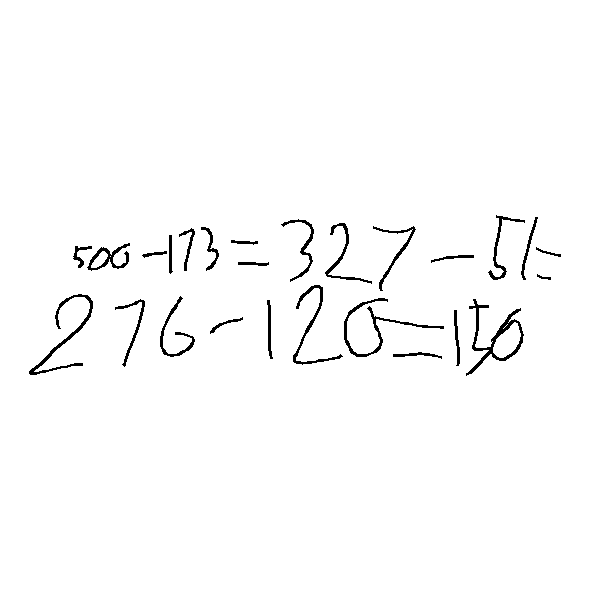 500-173=327-51=
276-120=156